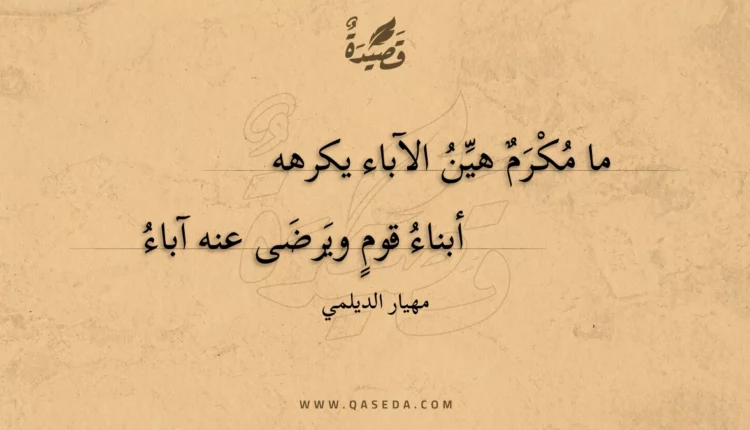 قَصِيْدَةٌ
ما مُكْرَمٌ هيِّنُ الآباء يكرهه
أبناءُ قومٍ ويَرضَى عنه آباءُ
مهيار الديلمي
WWW.QASEDA.COM